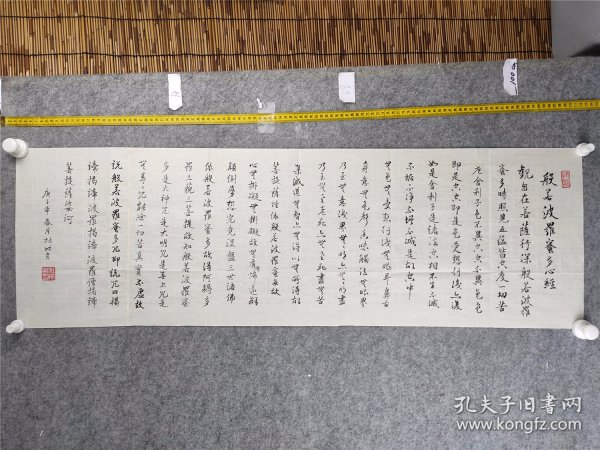 般若波羅蜜多心經
觀自在菩薩行深般若波羅
蜜多時照見五蘊皆空度一切苦
厄舍利子色不異空空不異色色
即是空空即是色受想行識亦復
如是舍利子是諸法空相不生不滅
不垢不淨不增不減是故空中
無色無受想行識無眼耳鼻舌
身意無色聲香味觸法無眼界
乃至無意識界無無明亦無無明盡
乃至無老死亦無老死盡無苦
集滅道無智亦無所得
菩提薩埵依般若波羅蜜多故
心無掛礙無掛礙故無
顛倒夢想究竟涅槃三世諸佛
依般若波羅蜜多故得阿耨多
羅三藐三菩提故知般若波羅蜜
多是大神咒是大明咒是無上咒是
無等等咒能除一切苦真實不虛故
說般若波羅蜜多咒即說咒曰揭
諦揭諦波羅揭諦波羅僧揭諦
菩提薩婆訶
孔夫子旧书网
www.kongfz.com